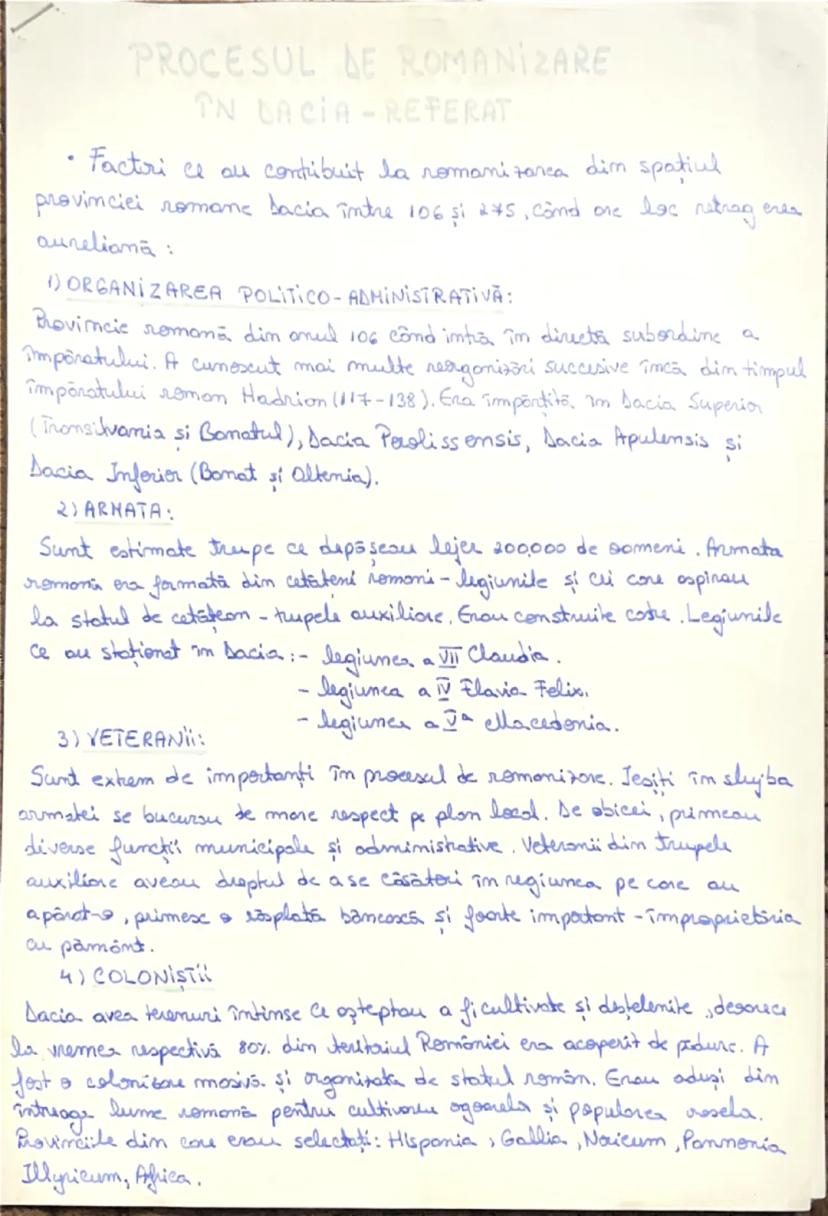 PROCESUL DE ROMANIZARE
ÎN DACIA - REFERAT
• Factori ce au contribuit la romanizarea din spațiul
provinciei romane Dacia între 106 și 275, când are loc retragerea
aureliană :
1) ORGANIZAREA POLITICO-ADMINISTRATIVĂ:
Provincie romană din anul 106 când intră în directă subordine a
împăratului. A cunoscut mai multe reorganizări succesive încă din timpul
împăratului roman Hadrian (117-138). Era împărțită în Dacia Superior
(Transilvania si Banatul), Dacia Porolissensis, Dacia Apulensis și
Dacia Inferior (Banat și Oltenia).
2) ARMATA:
Sunt estimate trupe ce depășeau lejer 200.000 de oameni. Armata
romană era formată din cetățeni romani - legiunile și cei care aspirau
la statul de cetățean - trupele auxiliare. Erau construite castre. Legiunile
ce au staționat în Dacia : - legiunea a VII Claudia.
- legiunea a IV Flavia Felix.
- legiunea a Vª Macedonia.
3) VETERANII:
Sunt extrem de importanți în procesul de romanizare. Ieșiți în slujba
armatei se bucurau de mare respect pe plan local. De obicei, primeau
diverse funcții municipale și administrative. Veteranii din trupele
auxiliare aveau dreptul de a se căsători în regiunea pe care au
apărat-o, primesc o răsplată bănească și foarte important - împroprietăria
cu pământ.
4) COLONIȘTII
Dacia avea terenuri întinse ce așteptau a fi cultivate și deștelenite, deoarece
la vremea respectivă 80% din teritoriul României era acoperit de pădure. A
fost o colonizare masivă și organizată de statul român. Erau aduși din
întreaga lume romană pentru cultivarea ogoarelor și popularea
Provinciile din care erau selectați: Hispania, Gallia, Noricum, Pannonia
Illyricum, Africa.